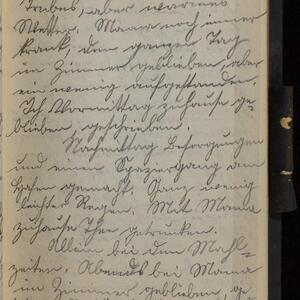 Trübes, aber warmes
Wetter. Mama noch immer
krank, den ganzen Tag
im Zimmer geblieben, aber
ein wenig aufgestanden.
Ich Vormittag zuhause ge-
blieben, geschrieben.
Nachmittag Besorgungen
und einen Spaziergang am
Hafen gemacht. Ganz wenig
leichter Regen. Mit Mama
zuhause Thee getrunken.
Allein bei den Mahl-
zeiten. Abends bei Mama
im Zimmer geblieben, ge